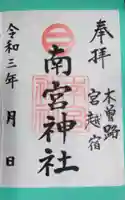 奉拝
木曽路
宮越宿
南宮神社
令和三年 月 日